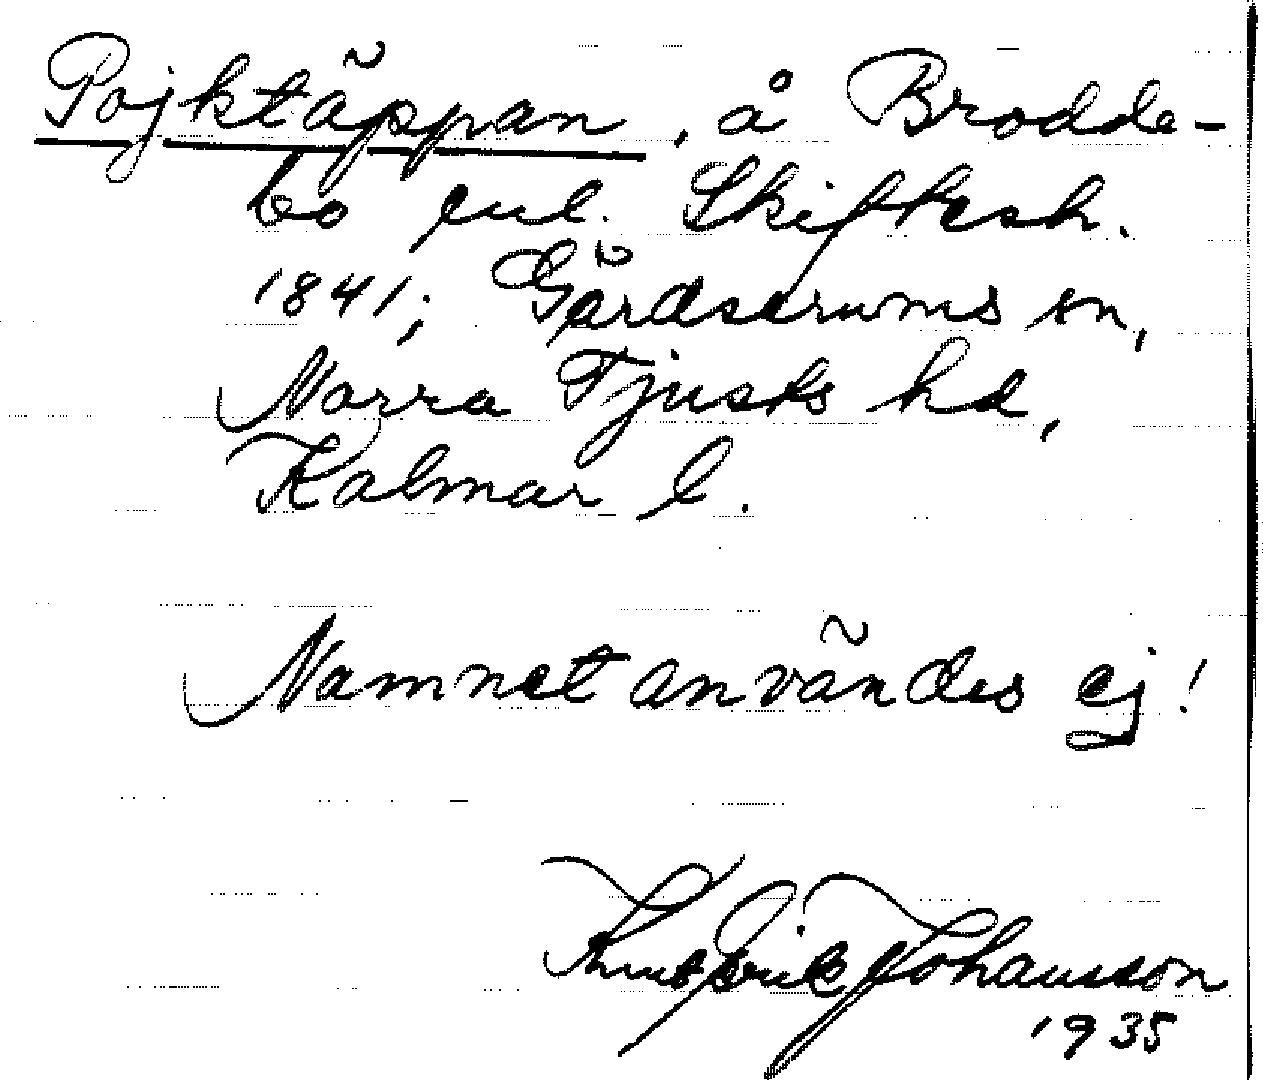 Pojktäppan, å Brodde-
bo enl. Skiftesh.
1841; Gärdserums sn,
Norra Tjusts hd,
Kalmar l.
Namnet användes ej!
Knut Erik Johansson
1935